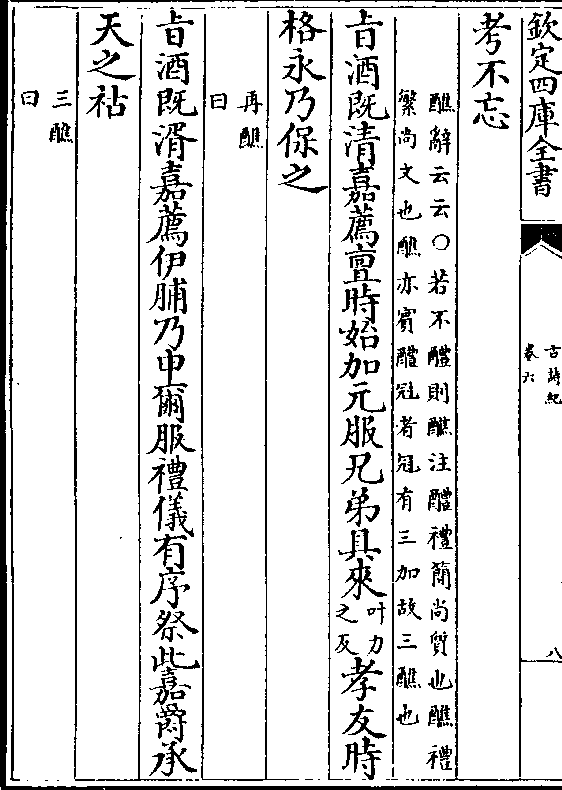 欽定四庫全書
古詩紀
卷六
八
考不忘
醮辭云云○若不醴則醮注醴禮簡尚質也醮禮
繁尚文也醮亦賓醴冠者冠有三加故三醮也
旨酒既清嘉薦亶時始加元服兄弟具來叶力之反孝友時
格永乃保之
再醮
曰
旨酒既湑嘉薦伊脯乃申爾服禮儀有序祭此嘉爵承
天之祜
三醮
曰